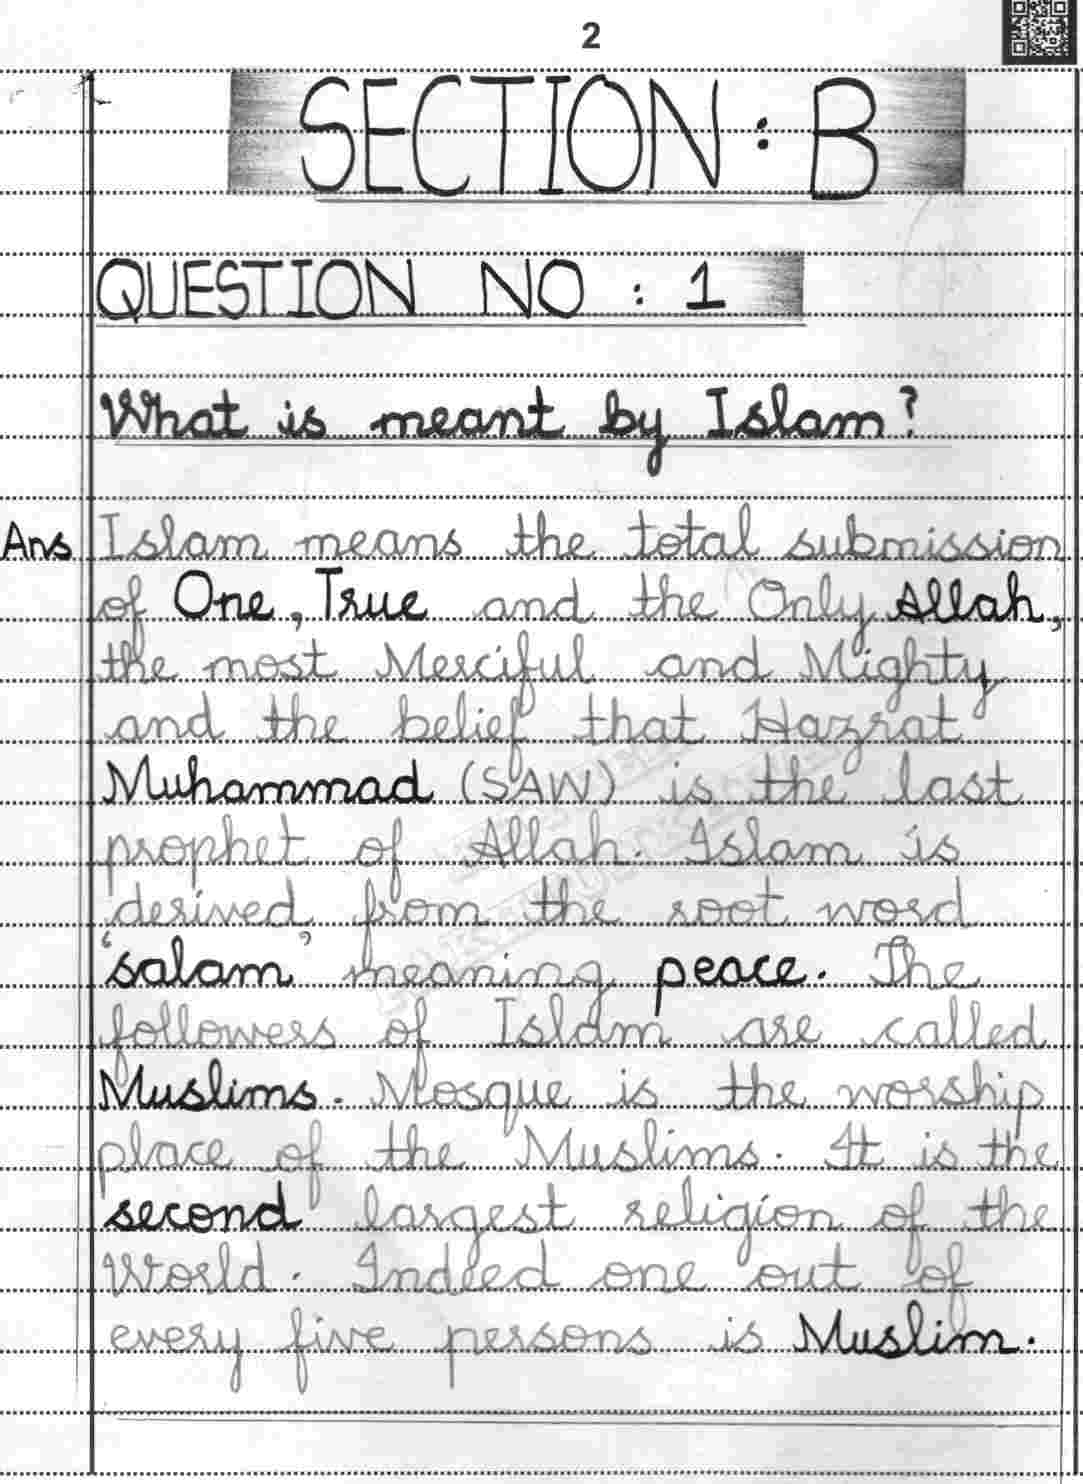 2
SECTION : B
QUESTION NO : 1
What is meant by Islam?
Ans Islam means the total submission
of One, True and the Only Allah,
the most Merciful and Mighty
and the belief that Hazrat
Muhammad (SAW) is the last
prophet of Allah. Islam is
derived from the root word
'salam' meaning peace. The
followers of Islam are called
Muslims. Mosque is the worship
place of the Muslims. It is the
second largest religion of the
World. Indeed one out of
every five persons is Muslim.